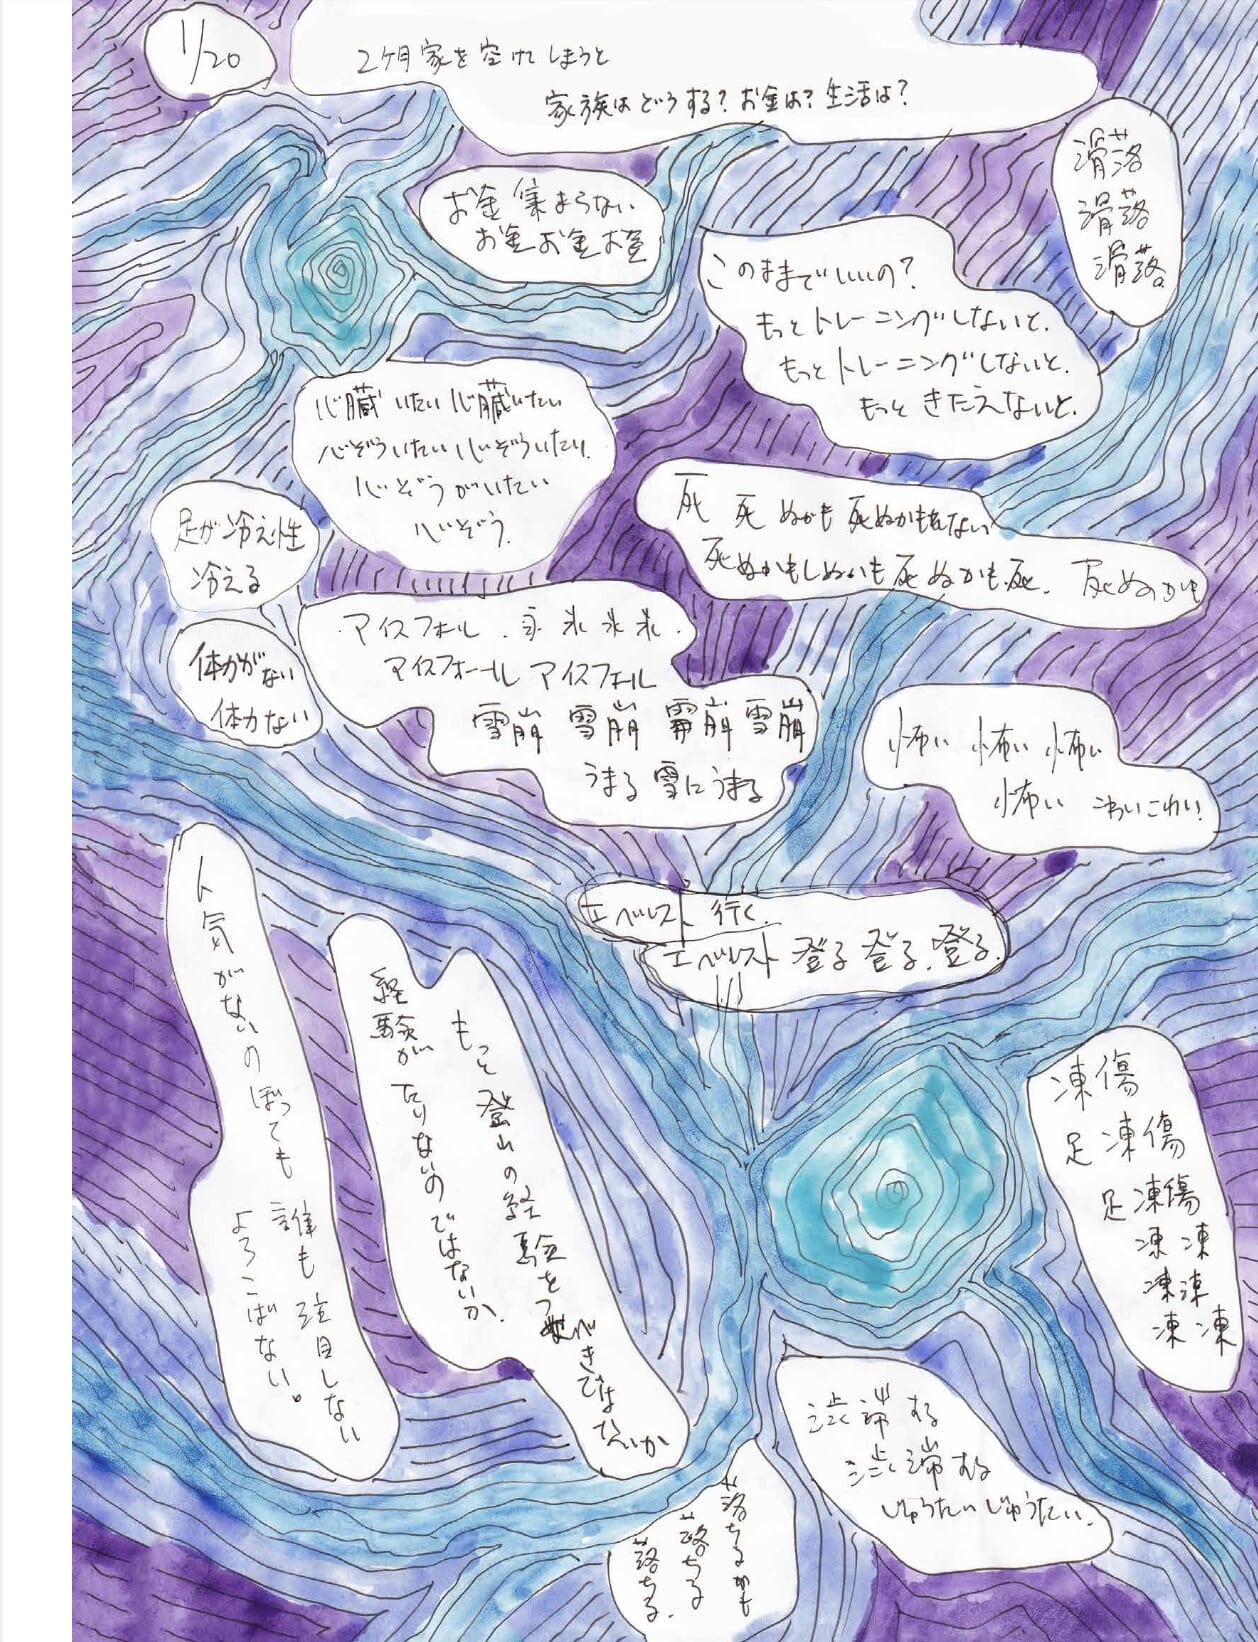 1/20
2ケ月家を空けてしまうと
家族はどうする?お金は?生活は?
滑落
滑落
滑落。
お金集まらない
お金お金お金
このままでいいの?
もっとトレーニングしないと.
もっとトレーニングしないと.
もっときたえないと.
心臓いたい心臓いたい
心ぞういたい心ぞういたい.
心ぞうがいたい
心ぞう.
足が冷え性
冷える
死 死ぬかも 死ぬかもしれない
死ぬかもしぬかも死ぬかも.死. 死ぬかも
体力がない
体力ない
アイスフォール.氷氷氷氷.
アイスフォール アイスフォール
雪崩 雪崩 雪崩 雪崩
うまる雪にうまる
怖い 怖い 怖い
怖い こわいこわい
エベレスト 行く.
エベレスト 登る登る.登る.
人気がないのぼっても誰も注目しない
よろこばない。
もっと登山の経験をつむべきではないか
経験がたりないのではないか.
凍傷
足 凍傷
足 凍傷
凍 凍
凍凍
凍 凍
渋滞する
渋滞する
じゅうたいじゅうたい.
落ちるかも
落ちる
落ちる.